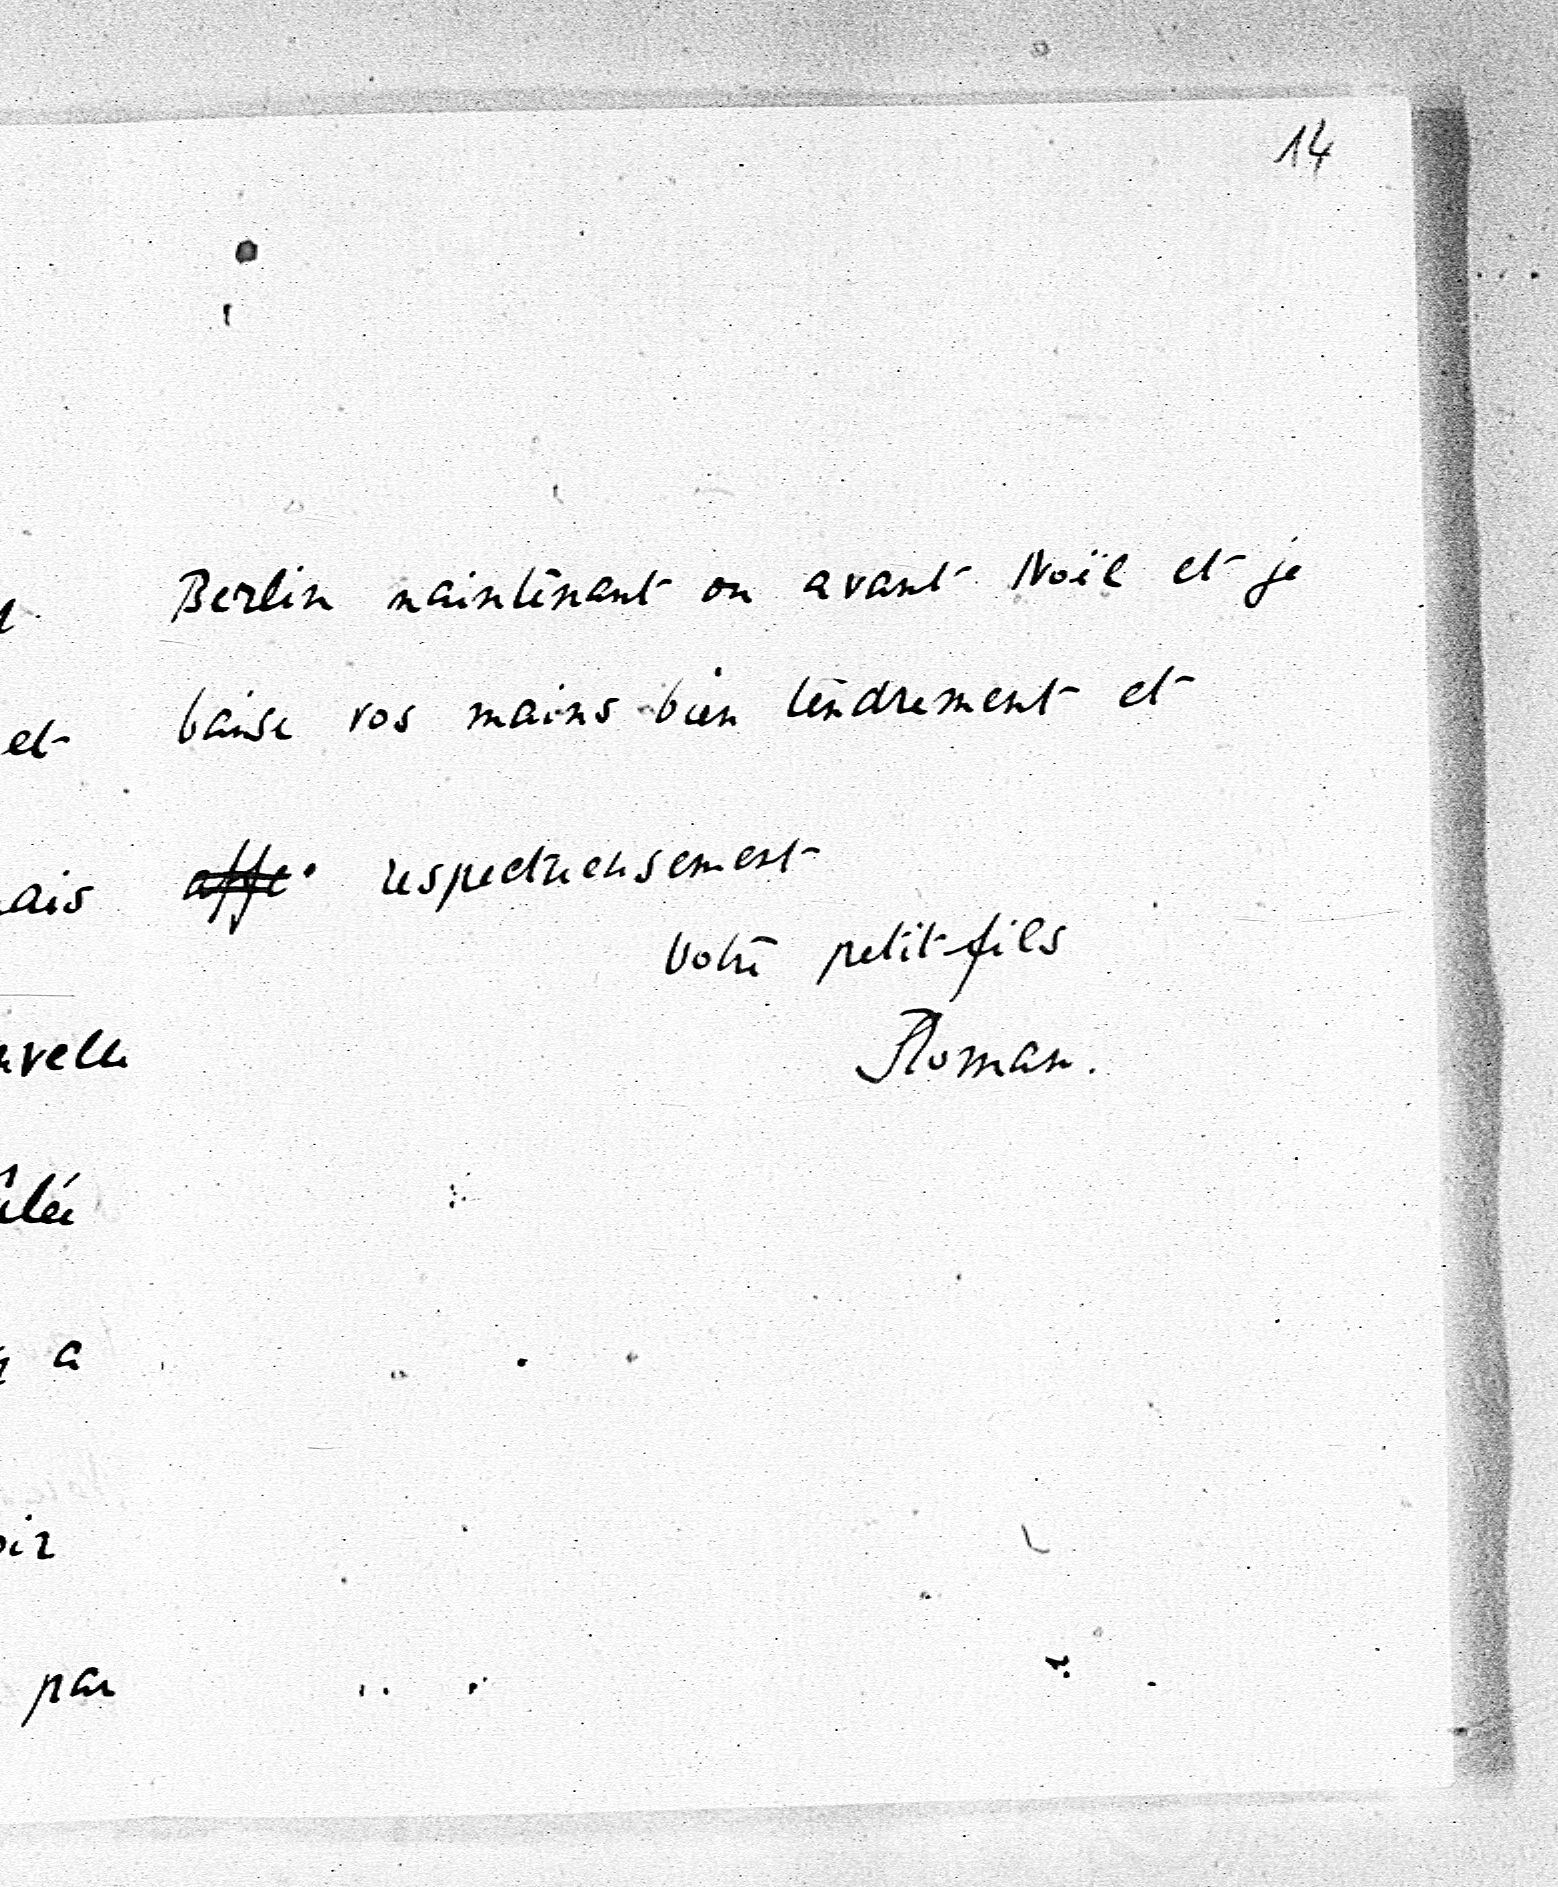 14
Berlin maintenant ou avant Noël et je
baise vos mains bien tendrement et
affe. respectueusement
Votre petit-fils
Roman.
et
par